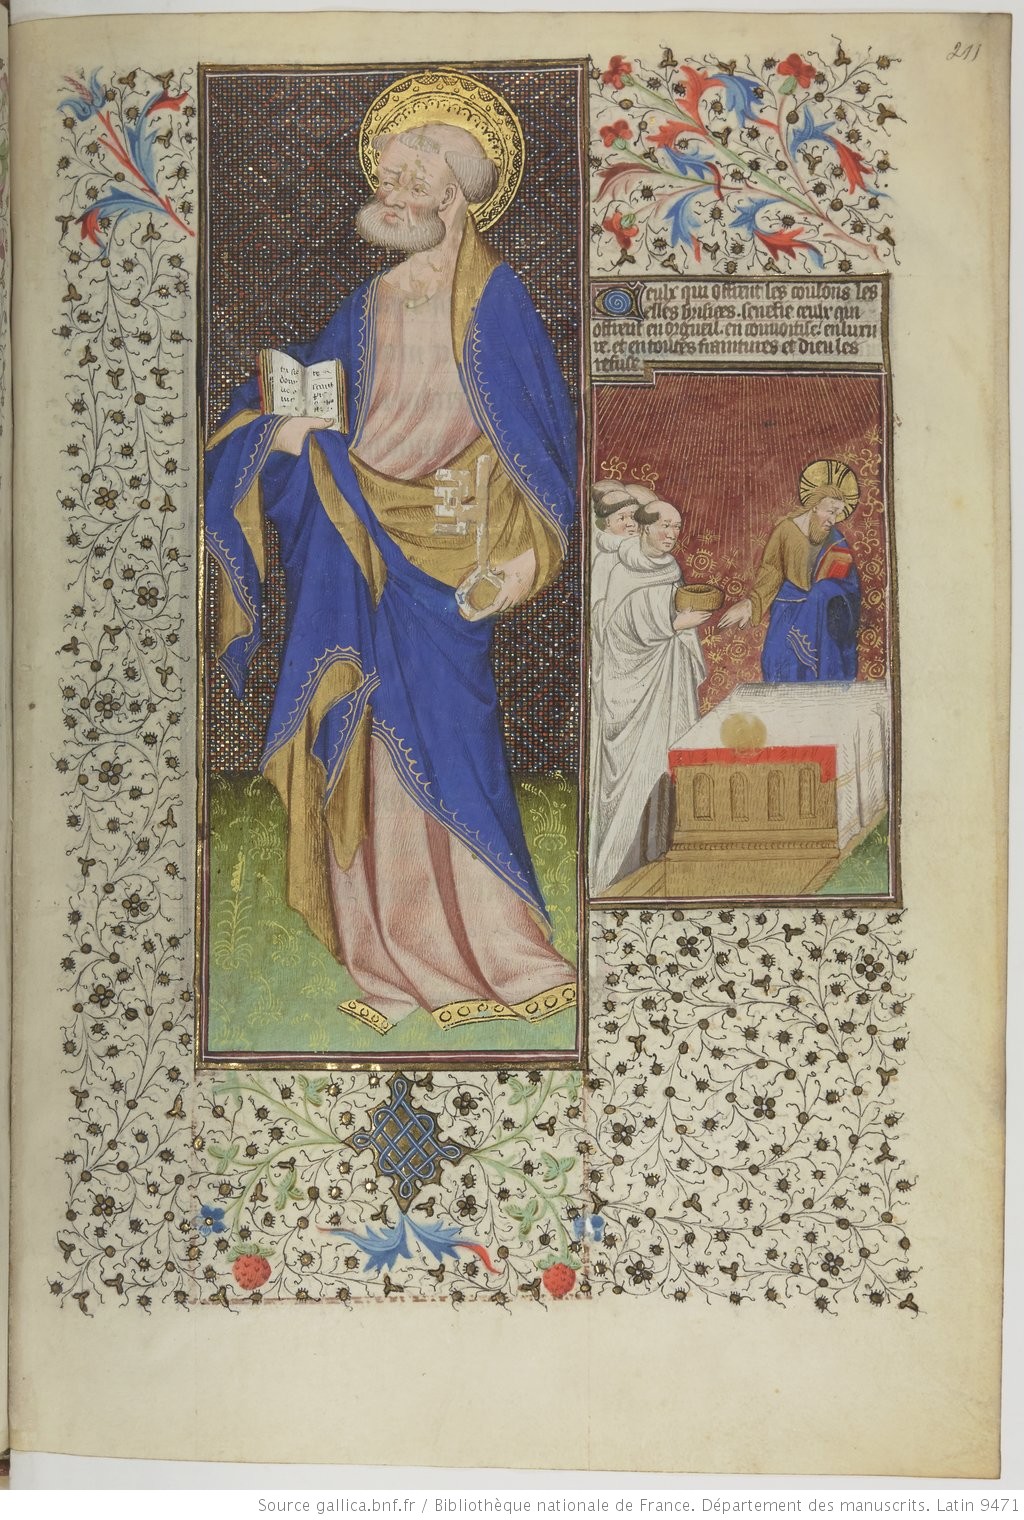 211
Ceulx qui offrent les coulons les
elles brisiees. senefie ceulx qui
offrent en orgueil. en convoitise. en luxu
re. et en toutes fraintures et dieu les
refuse
Source gallica.bnf.fr / Bibliothèque nationale de France. Département des manuscrits. Latin 9471